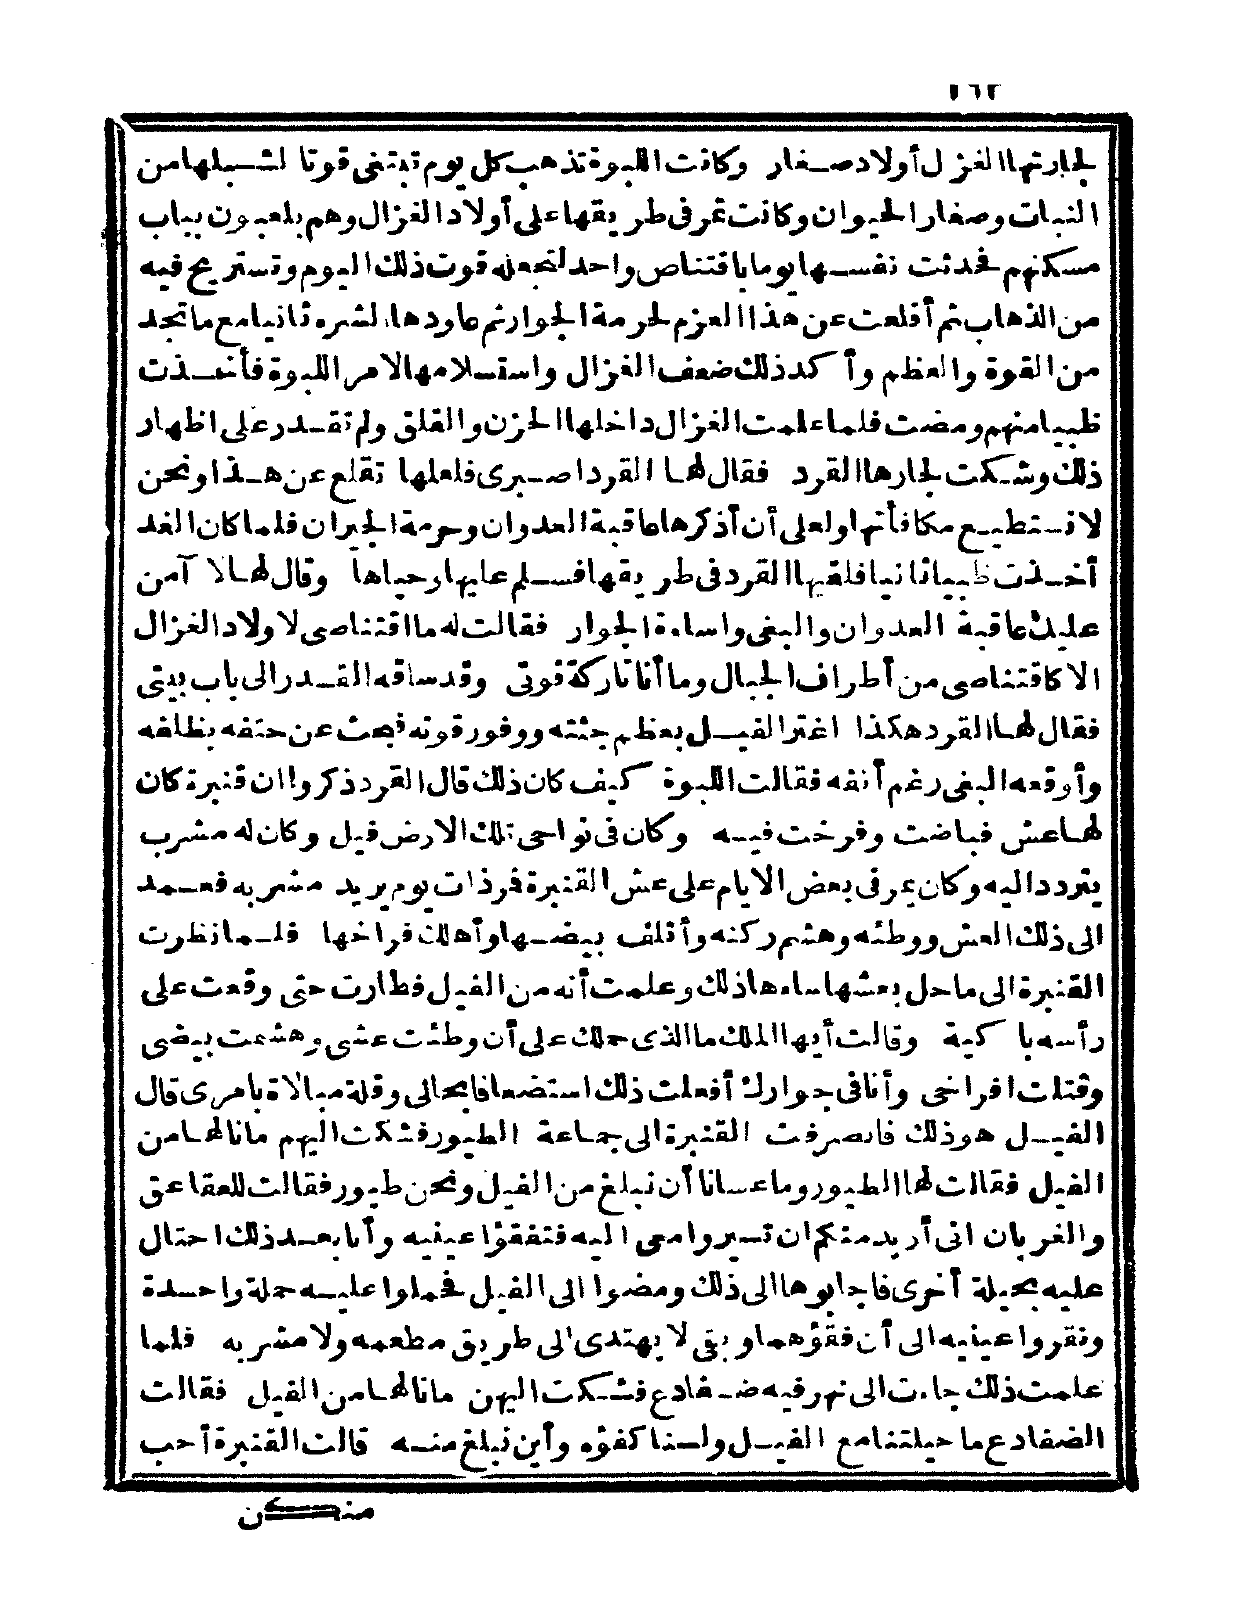 ١٦٢
لجارتها الغزال أولاد صغار وكانت اللبوة تذهب كل يوم تبتغى قوتا لشبلها من
النبات وصغار الحيوان وكانت تمر فى طريقها على أولاد الغزال وهم يلعبون بباب
مسكنهم فحدثت نفسها يوما باقتناص واحد لتجعله قوت ذلك اليوم وتستريح فيه
من الذهاب ثم أقلعت عن هذا العزم لحرمة الجوار ثم عاودها الشره ثانيا مع ما تجد
من القوة والعظم وأكد ذلك ضعف الغزال واستسلامها لامر اللبوة فأخذت
ظبيا منهم ومضت فلما علمت الغزال داخلها الحزن والقلق ولم تقدر على اظهار
ذلك وشكت لجارها القرد فقال لها القرد اصبرى فلعلها تقلع عن هذا ونحن
لا نستطيع مكافأتها ولعلى أن أذكرها عاقبة العدوان وحرمة الجيران فلما كان الغد
أخذت ظبيا ثانيا فلقيها القرد فى طريقها فسلم عليها وحياها وقال لها لا آمن
عليك عاقبة العدوان والبغى واساءة الجوار فقالت له ما اقتناصى لاولاد الغزال
الا كاقتناصى من أطراف الجبال وما أنا تاركة قوتى وقد ساقه القدر الى باب بيتى
فقال لها القرد هكذا اغتر الفيل بعظم جثته ووفور قوته فبحث عن حتفه بظلفه
وأوقعه البغى رغم أنفه فقالت اللبوة كيف كان ذلك قال القرد ذكروا ان قنبرة كان
لها عش فباضت وفرخت فيه وكان فى نواحى تلك الارض فيل وكان له مشرب
يتردد اليه وكان يمر فى بعض الايام على عش القنبرة فمر ذات يوم يريد مشربه فعمد
الى ذلك العش ووطئه وهشم ركنه وأتلف بيضها وأهلك فراخها فلما نظرت
القنبرة الى ما حل بعشها ساءها ذلك وعلمت أنه من الفيل فطارت حتى وقعت على
رأسه باكية وقالت أيها الملك ما الذى حملك على أن وطئت عشى وهشمت بيضى
وقتلت افراخى وأنا فى جوارك أفعلت ذلك استضعافا بحالى وقلة مبالاة بامرى قال
الفيل هو ذلك فانصرفت القنبرة الى جماعة الطيور فشكت اليهم ما نالها من
الفيل فقالت لها الطيور وما عسانا أن نبلغ من الفيل ونحن طيور فقالت للعقاعق
والغربان انى أريد منكم ان تسيروا معى اليه فتفقؤا عينيه وأنا بعد ذلك احتال
عليه بحيلة أخرى فاجابوها الى ذلك ومضوا الى الفيل فحملوا عليه حملة واحدة
ونقروا عينيه الى أن فقؤهما وبقى لا يهتدى الى طريق مطعمه ولا مشربه فلما
علمت ذلك جاءت الى نهر فيه ضفادع فشكت اليهن ما نالها من الفيل فقالت
الضفادع ما حيلتنا مع الفيل ولسنا كفؤه وأين نبلغ منه قالت القنبرة أحب
منكن